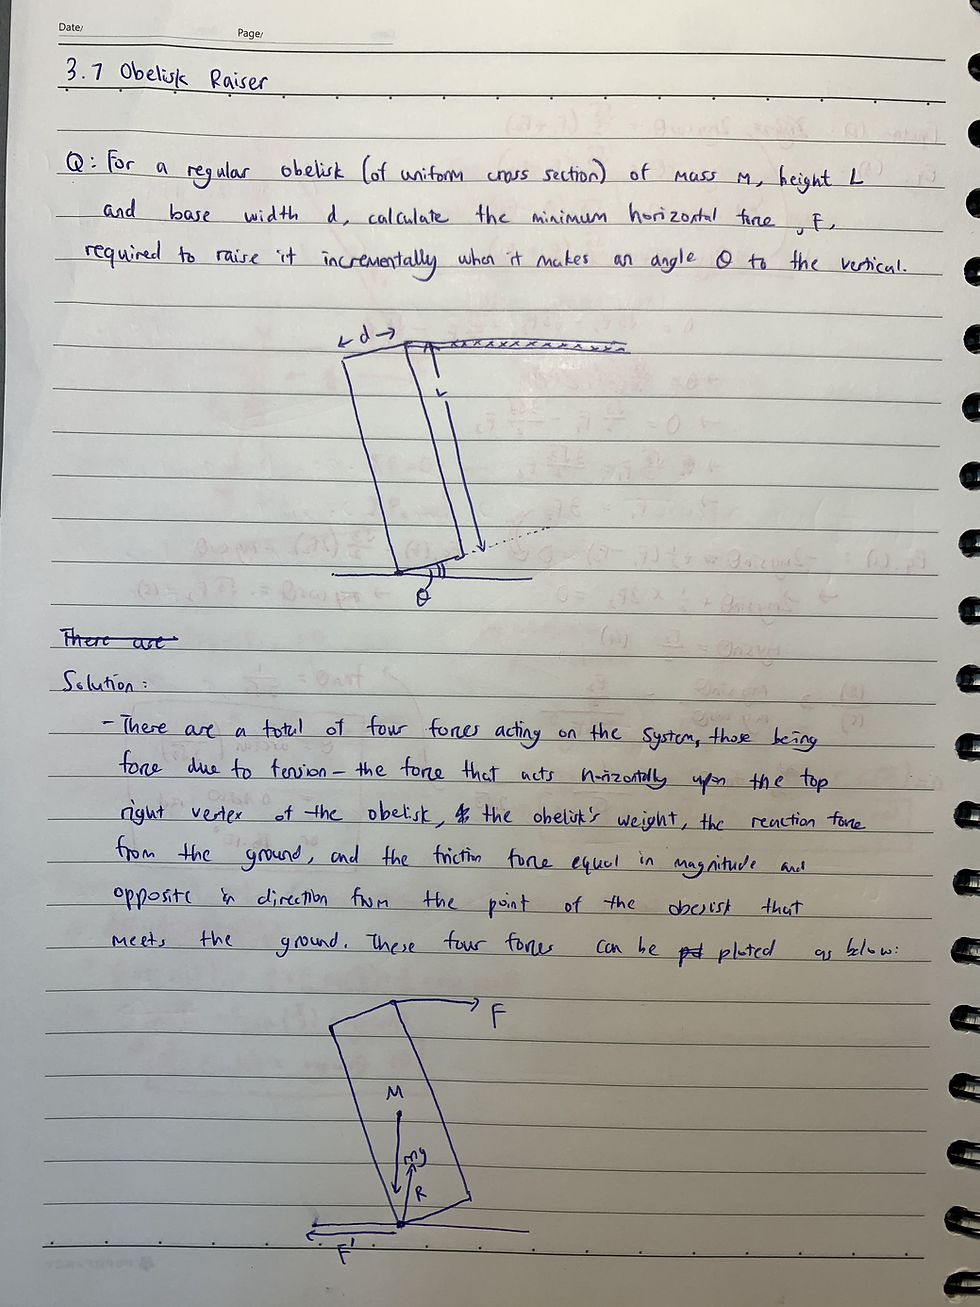 Date/
Page/
3.7 Obelisk Raiser
Q: For a regular obelisk (of uniform cross section) of mass M, height L
and base width d, calculate the minimum horizontal force, F,
required to raise it incrementally when it makes an angle θ to the vertical.
d
L
θ
There are
Solution:
- There are a total of four forces acting on the system, those being
force due to tension - the force that acts horizontally upon the top
right vertex of the obelisk, & the obelisk's weight, the reaction force
from the ground, and the friction force equal in magnitude and
opposite in direction from the point of the obelisk that
meets the ground. These four forces can be ploted as below:
F
M
mg
R
F'